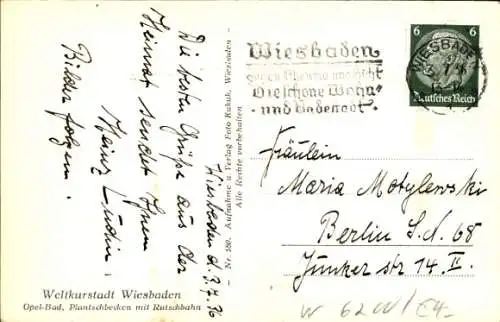 Wiesbaden d. 3.7.36
Die besten Grüße aus der
Heimat sendet Ihnen
Heinz Ludin.
Bilder folgen.
Weltkurstadt Wiesbaden
Opel-Bad, Plantschbecken mit Rutschbahn
Nr. 180. Aufnahme u. Verlag Foto Kukuk, Wiesbaden
Alle Rechte vorbehalten
Wiesbaden
gegen Rheuma und Gicht
Die schöne Wohn-
und Badestadt.
WIESBADEN
6 6
Deutsches Reich
Fräulein
Maria Motylewski
Berlin S.N. 68
Junker str 14 II.
W 6200/